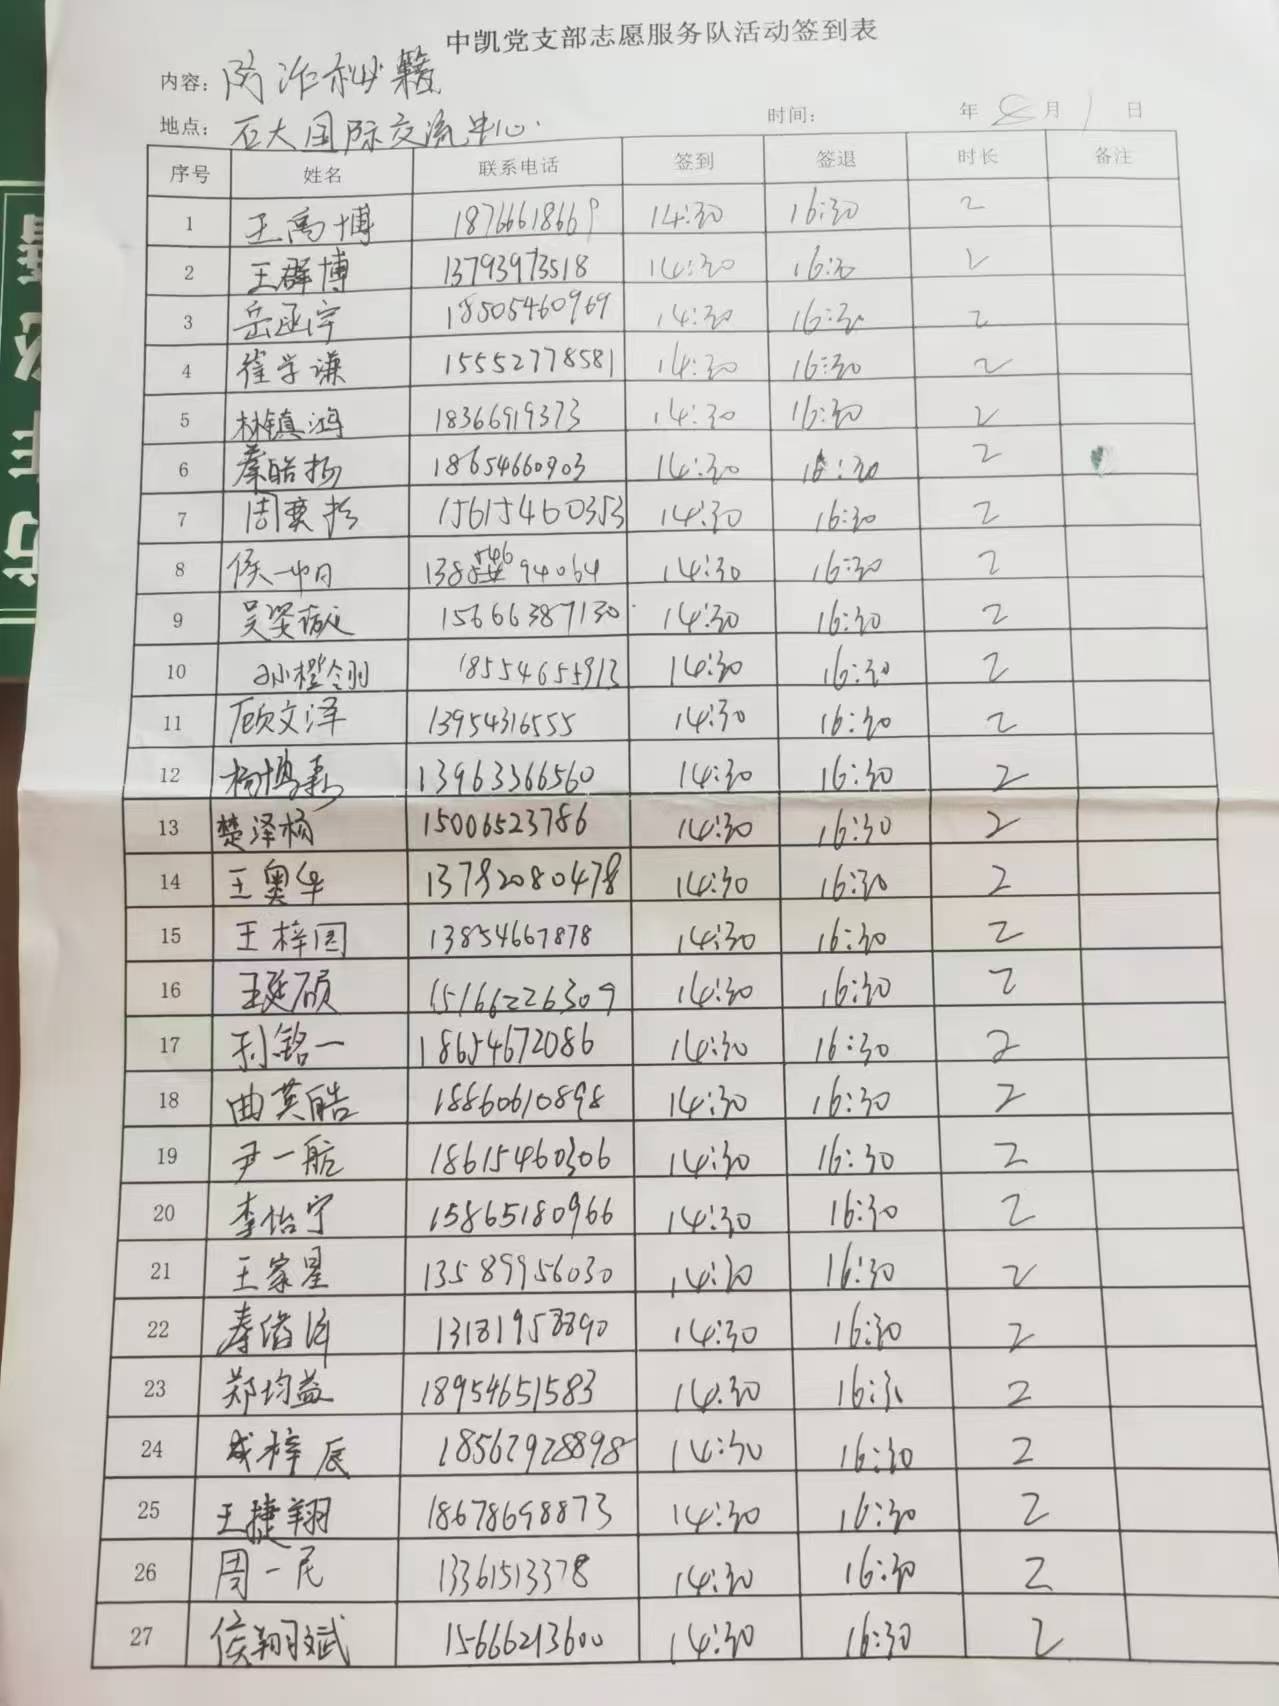 中凯党支部志愿服务队活动签到表
内容：防诈秘籍
地点：石大国际交流中心 时间： 年 8月1日
序号 姓名 联系电话 签到 签退 时长 备注
1 王高博 18766618669 14:30 16:30 2
2 王群博 13793973518 14:30 16:30 2
3 岳函宇 18505460969 14:30 16:30 2
4 崔学谦 15552778581 14:30 16:30 2
5 林镇鸿 18366919373 14:30 16:30 2
6 秦皓扬 18654660903 14:30 16:30 2
7 周奕杉 15615460353 14:30 16:30 2
8 侯一 14:30 16:30 2
9 吴 15666387130 14:30 16:30 2
10 孙橙翎 18554655913 14:30 16:30 2
11 顾文泽 13954316555 14:30 16:30 2
12 杨 13963366560 14:30 16:30 2
13 楚泽杨 15006523786 14:30 16:30 2
14 王奥华 14:30 16:30 2
15 王梓图 13854667878 14:30 16:30 2
16 王延硕 15166226309 14:30 16:30 2
17 铭一 18654672086 14:30 16:30 2
18 曲英皓 18860610898 14:30 16:30 2
19 尹一航 18615460306 14:30 16:30 2
20 李怡宁 15865180966 14:30 16:30 2
21 王家星 13589956030 14:30 16:30 2
22 14:30 16:30 2
23 郑均益 18954651583 14:30 16:30 2
24 成梓辰 18562928898 14:30 16:30 2
25 王捷翔 18678698873 14:30 16:30 2
26 周一民 13361513378 14:30 16:30 2
27 侯翔斌 15666213600 14:30 16:30 2